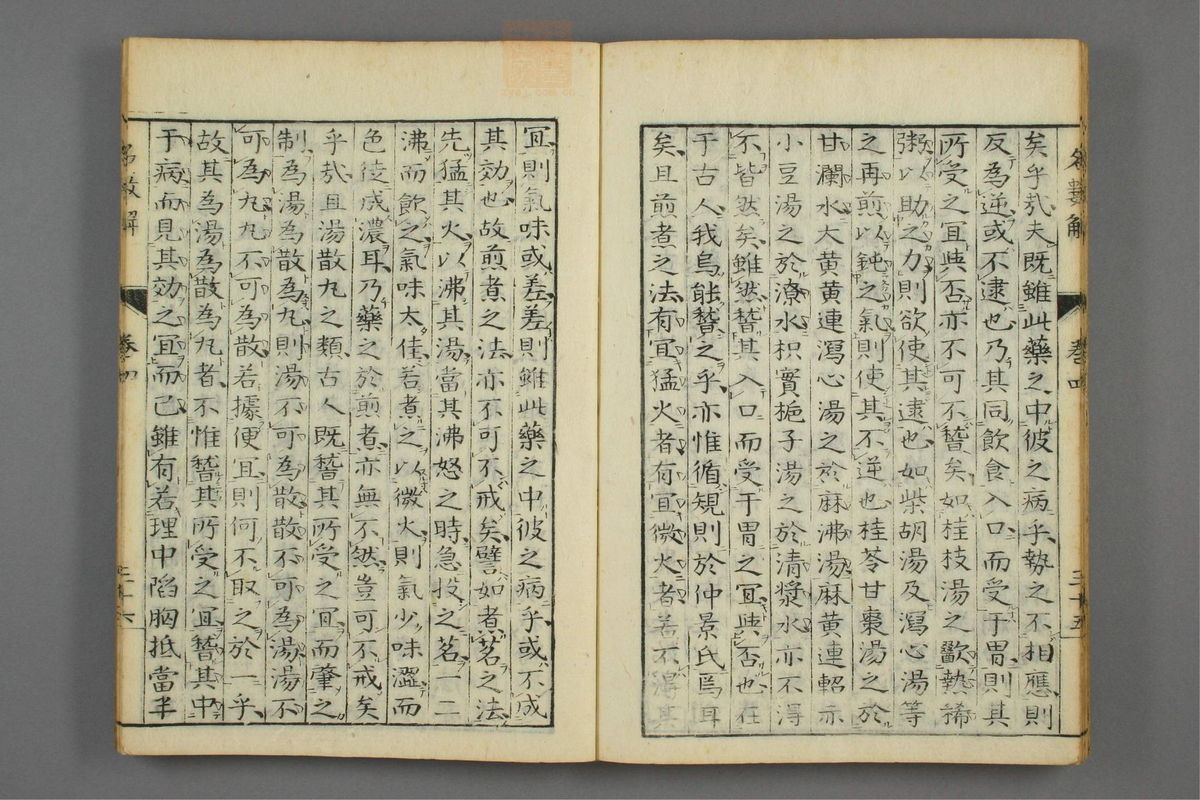 矣乎㢤夫既雖此藥之中彼之病乎勢之不相應則
反為逆或不逮也乃其同飲食入口而受于胃則其
所受之宜與否亦不可不謷矣如桂枝湯之歠熱稀
粥以助之力則欲使其逮也如柴胡湯及瀉心湯等
之再煎以鈍之氣則使其不逆也桂苓甘棗湯之於
甘瀾水大黄黄連瀉心湯之於麻沸湯麻黄連軺赤
小豆湯之於潦水枳實梔子湯之於清漿水亦不得
不皆然矣雖然謷其入口而受于胃之宜與否也在
于古人我烏能謷之乎亦惟循規則於仲景氏焉耳
矣且煎煮之法有宜猛火者有宜微火者若不得其
宜則氣味或差差則雖此藥之中彼之病乎或不成
其効也故煎煮之法亦不可不戒矣譬如煮茗之法
先猛其火以沸其湯當其沸怒之時急投之茗一二
沸而飲之氣味太佳若煮之以微火則氣少味澀而
色徒成濃耳乃藥之於煎煮亦無不然豈可不戒矣
乎㢤且湯散丸之類古人既謷其所受之宜而肇之
制為湯為散為丸則湯不可為散散不可為湯湯不
可為丸丸不可為散若據便宜則何不取之於一乎
故其為湯為散為丸者不惟謷其所受之宜謷其中
于病而見其効之宜而已雖有若理中陷胸抵當半